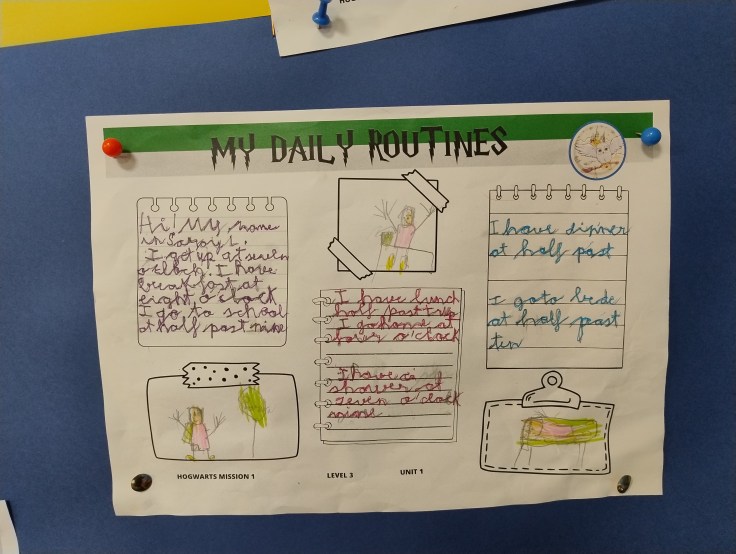 MY DAILY ROUTINES
Hi! My name
is
I get up at seven
o'clock. I have
breakfast at
eight o'clock
I go to school
at half past nine
I have lunch
half past
I go home at
o'clock
I have a
shower at
seven o'clock
I have dinner
at half past
I go to bede
at half peast
ten
HOGWARTS MISSION 1
LEVEL 3
UNIT 1